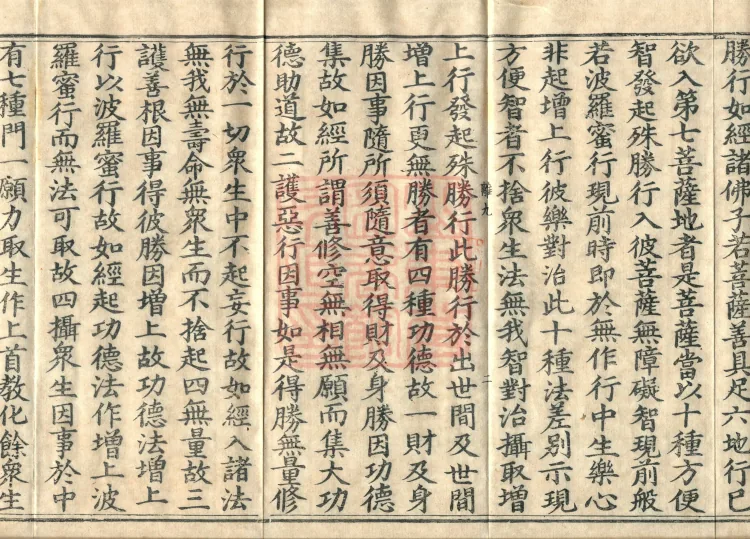 勝行如經諸佛子若菩薩善具足六地行已
欲入第七菩薩地者是菩薩當以十種方便
智發起殊勝行入彼菩薩無障礙智現前般
若波羅蜜行現前時即於無作行中生樂心
非起增上行彼樂對治此十種法差別示現
方便智者不捨衆生法無我智對治攝取增
離九
二
上行發起殊勝行此勝行於出世間及世間
增上行更無勝者有四種功德故一財及身
勝因事隨所須隨意取得財及身勝因功德
集故如經所謂善修空無相無願而集大功
德助道故二護惡行因事如是得勝無量修
行於一切衆生中不起妄行故如經入諸法
無我無壽命無衆生而不捨起四無量故三
護善根因事得彼勝因增上故功德法增上
行以波羅蜜行故如經起功德法作增上波
羅蜜行而無法可取故四攝衆生因事於中
有七種門一願力取生作上首教化餘衆生